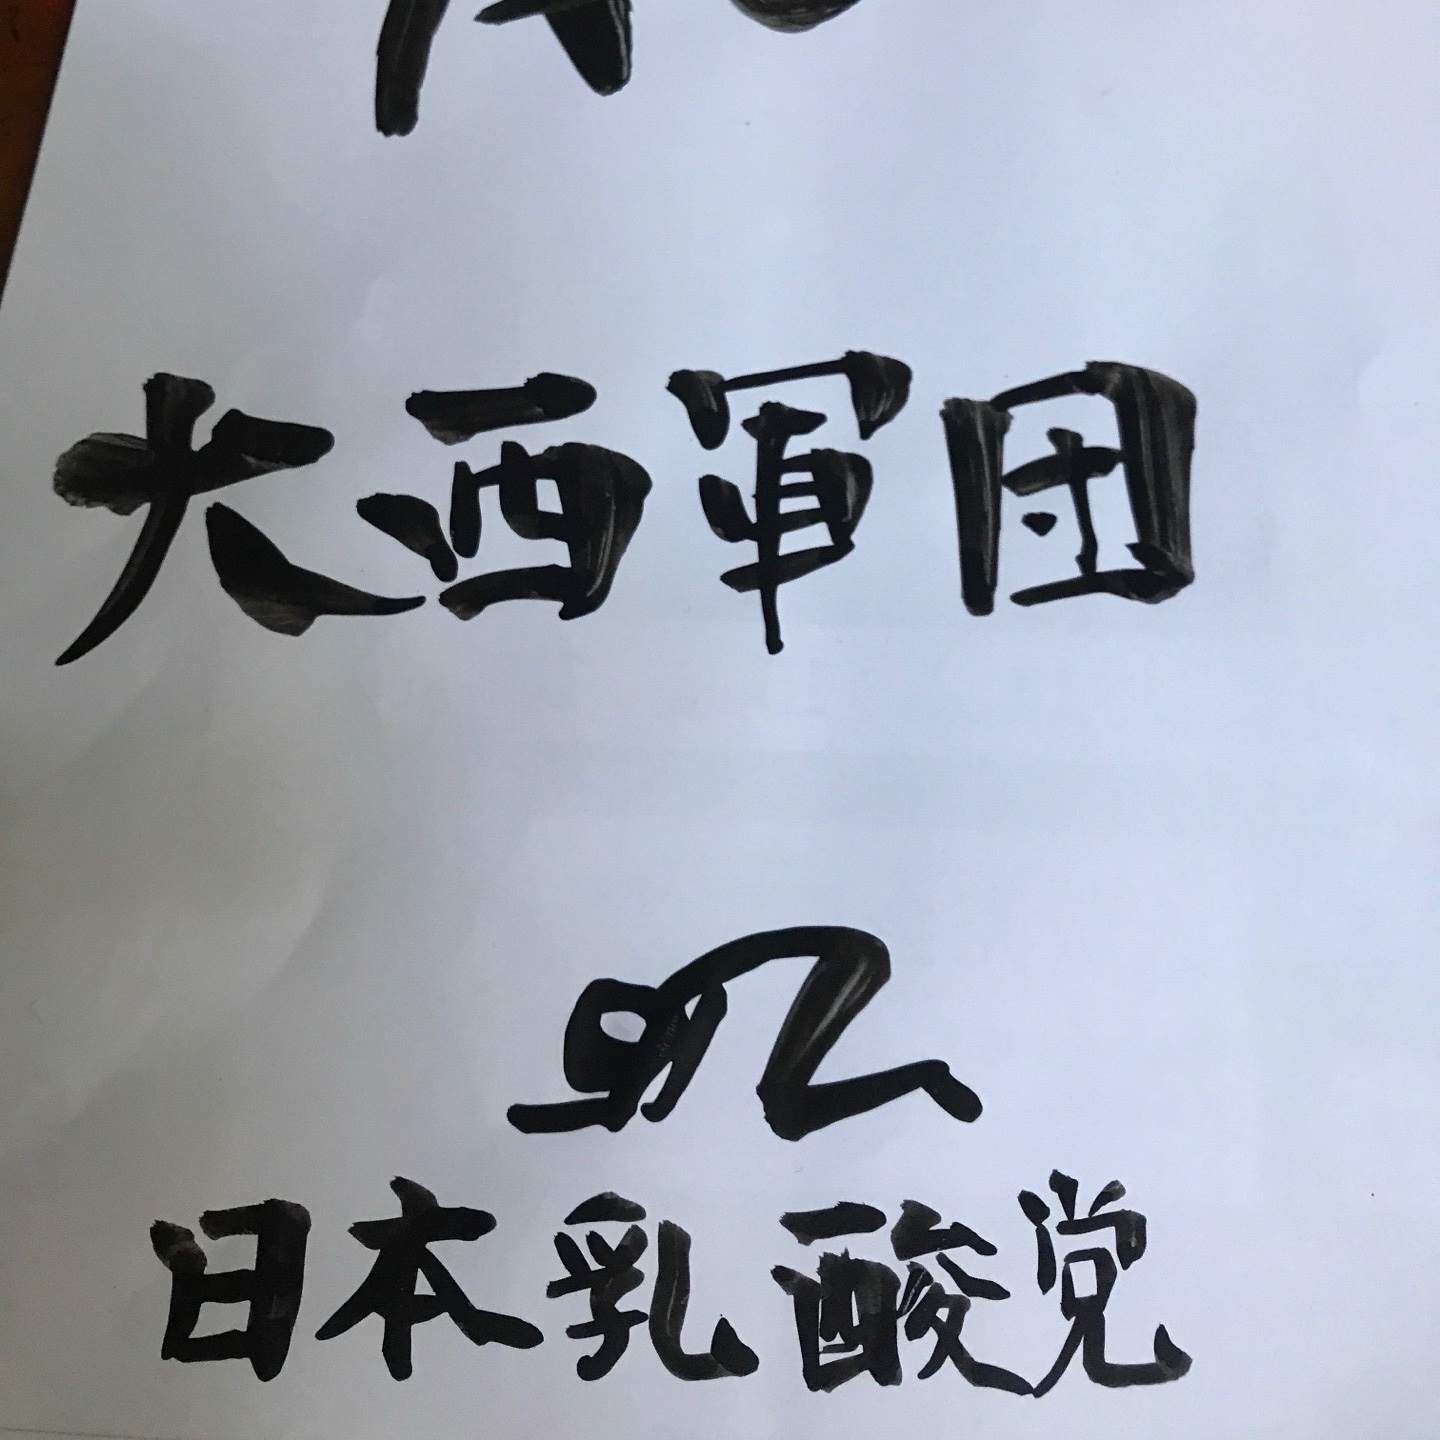 大西軍団
日本乳酸党